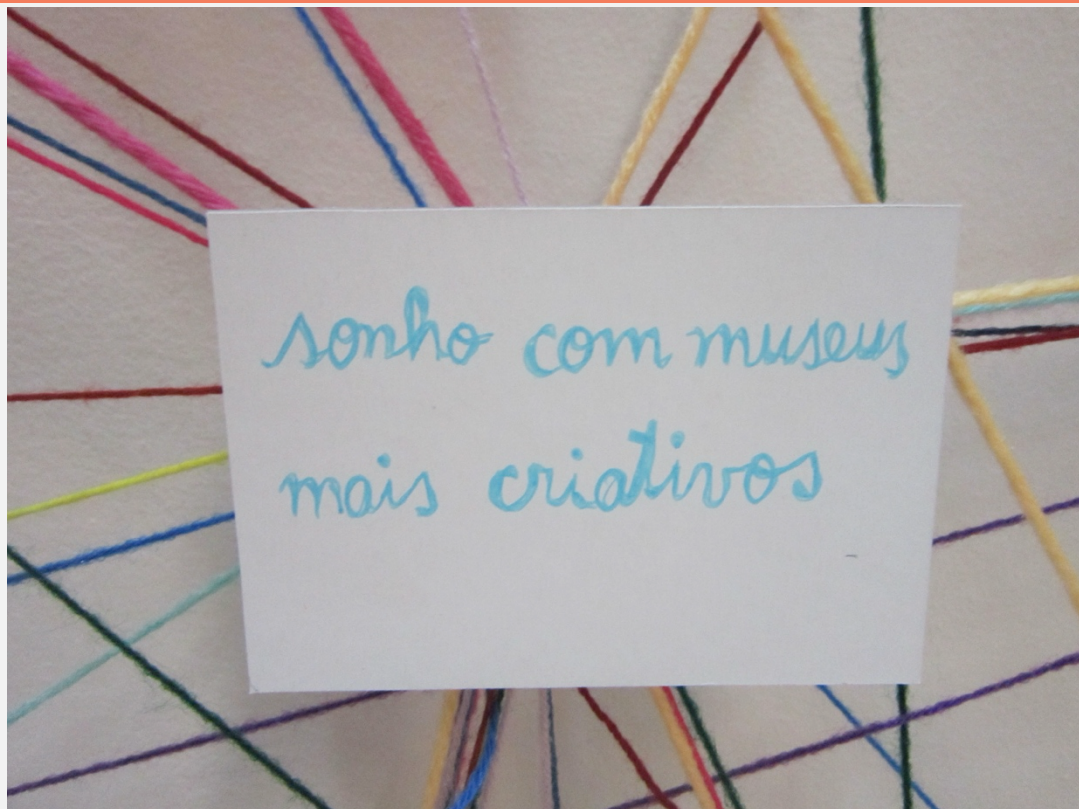 sonho com museus
mais criativos